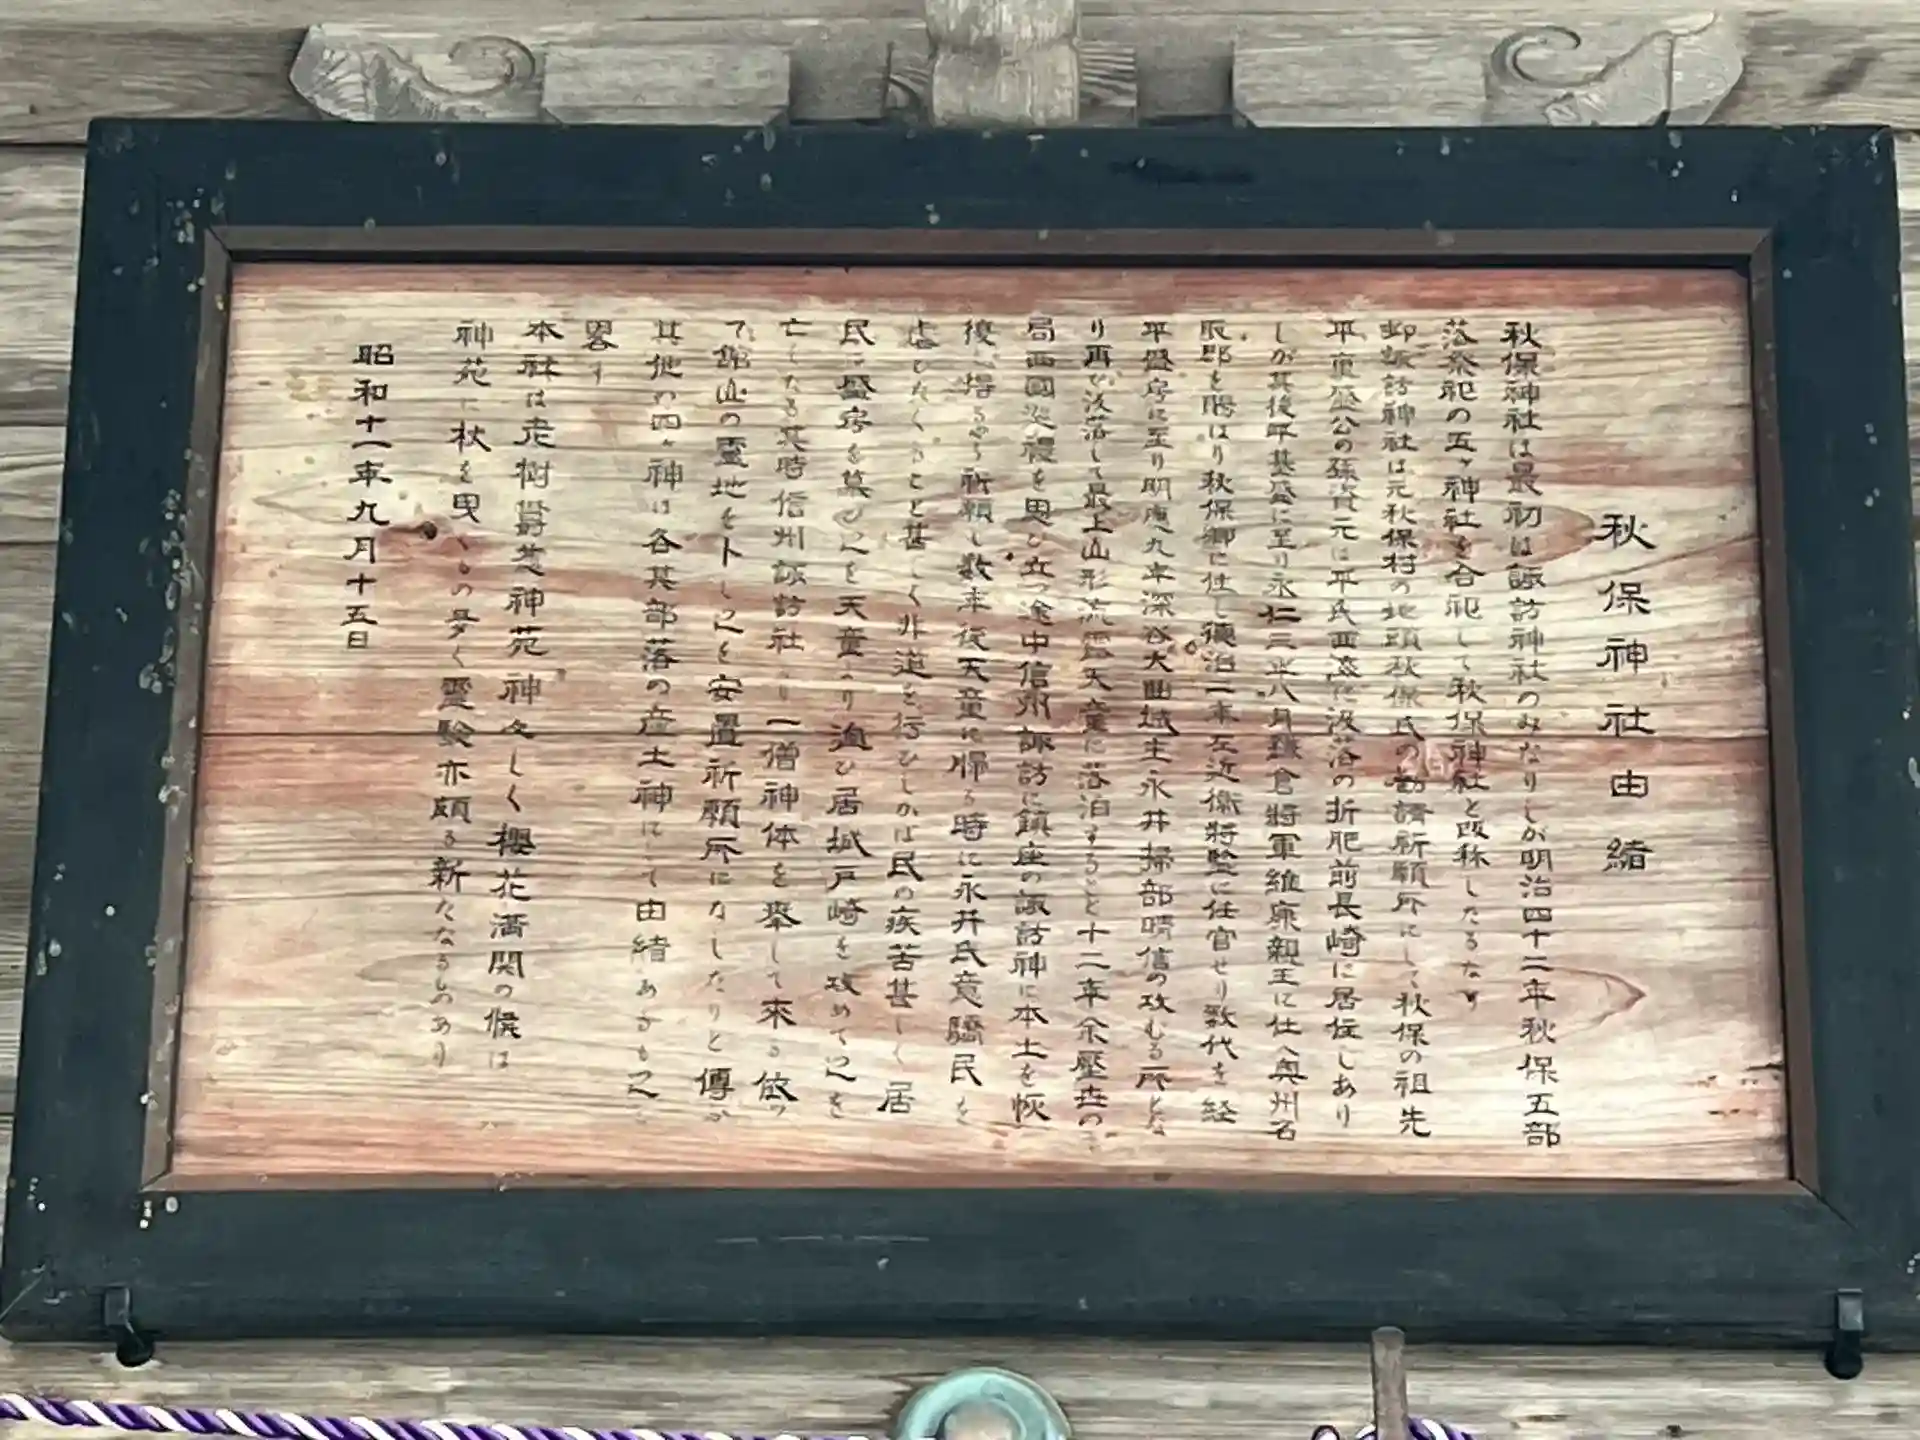 秋保神社由緒
秋保神社は最初は諏訪神社のみなりしが明治四十二年秋保五部
落祭祀の五ヶ神社を合祀して秋保神社と改称したるなり
御諏訪神社は元秋保村の地頭秋保氏の勧請祈願所にして秋保の祖先
平重盛公の孫資元は平氏西海に没落の折肥前長崎に居住しあり
しが其後平基盛に至り永仁三年八月鎌倉將軍維康親王に仕へ奥州名
取郡を賜はり秋保郷に住し 治二年左近衛將監に任官せり数代を経
平盛房に至り明應九年深谷大曲城主永井掃部晴信の攻むる所とな
り再び没落して最上山形流 天童に落泊すること十二年余 の
局西國巡禮を思ひ立つ途中信州諏訪に鎮座の諏訪神に本土を恢
復し得るやう祈願し数年後天童に帰る時に永井氏意驕民を
虐ひたくること甚しく非道を行ひしかば民の疾苦甚しく居
民は盛房を慕ひ之を天童より迎ひ居城戸崎を攻めて之を
亡くしたる其時信州諏訪社より一僧神体を奉して来る依つ
て館山の靈地を卜し之を安置祈願所になしたりと傳か
其他の四ヶ神は各其部落の産土神にして由緒あるも之
畧す
本社は老樹欝蒼神苑神々しく櫻花満開の候は
神苑に杖を曳くもの多く靈験亦頗る新たなるものあり
昭和十一年九月十五日